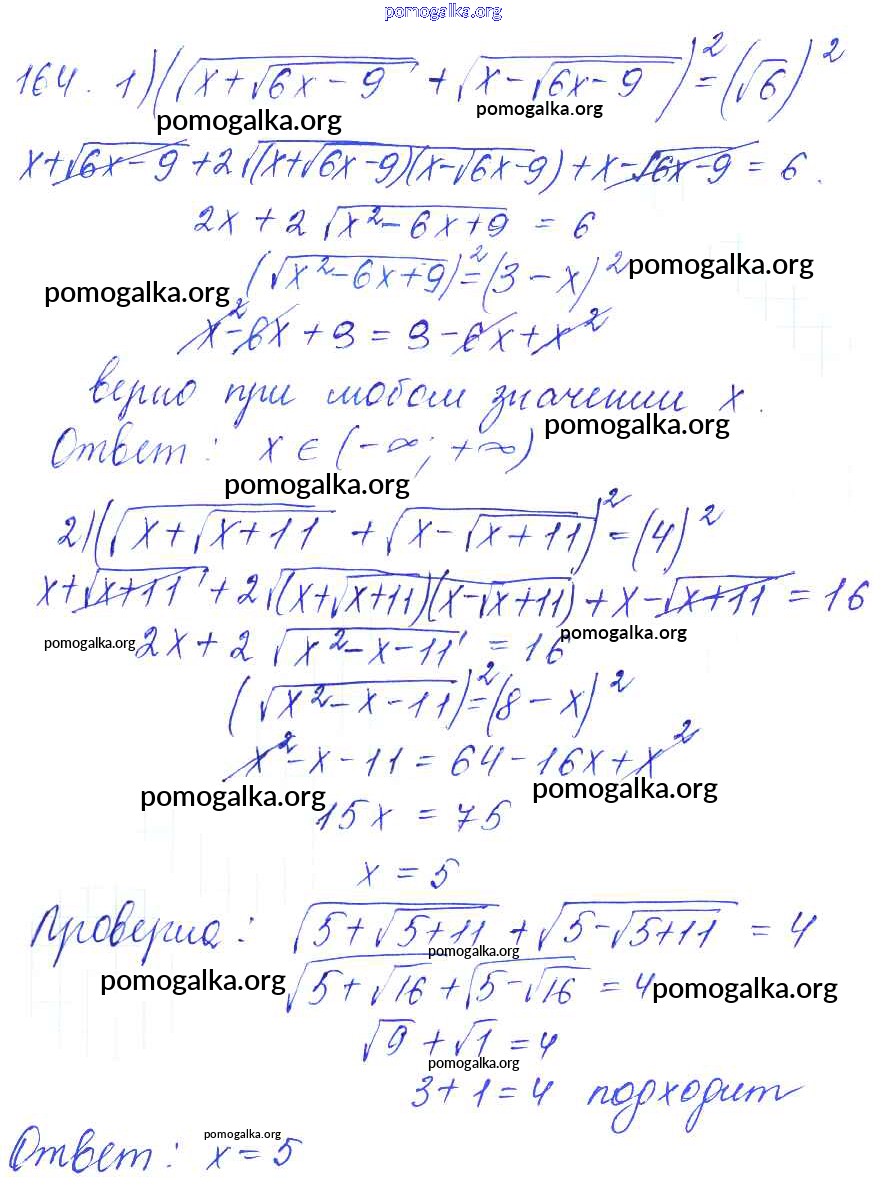 pomogalka.org
164. 1) (√(x+√(6x-9)) + √(x-√(6x-9)))² = (√6)²
pomogalka.org pomogalka.org
x+√(6x-9) + 2√((x+√(6x-9))(x-√(6x-9))) + x-√(6x-9) = 6.
2x + 2√(x²-6x+9) = 6
(√(x²-6x+9))² = (3-x)² pomogalka.org
pomogalka.org
x²-6x+9 = 9-6x+x²
верно при любом значении x.
pomogalka.org
Ответ: x ∈ (-∞; +∞)
pomogalka.org
2) (√(x+√(x+11)) + √(x-√(x+11)))² = (4)²
x+√(x+11) + 2√((x+√(x+11))(x-√(x+11))) + x-√(x+11) = 16
pomogalka.org 2x + 2√(x²-x-11) = 16 pomogalka.org
(√(x²-x-11))² = (8-x)²
x²-x-11 = 64-16x+x²
pomogalka.org pomogalka.org
15x = 75
x = 5
Проверка: √(5+√(5+11)) + √(5-√(5+11)) = 4
pomogalka.org
pomogalka.org √(5+√16) + √(5-√16) = 4 pomogalka.org
√9 + √1 = 4
pomogalka.org
3+1=4 подходит
pomogalka.org
Ответ: x=5